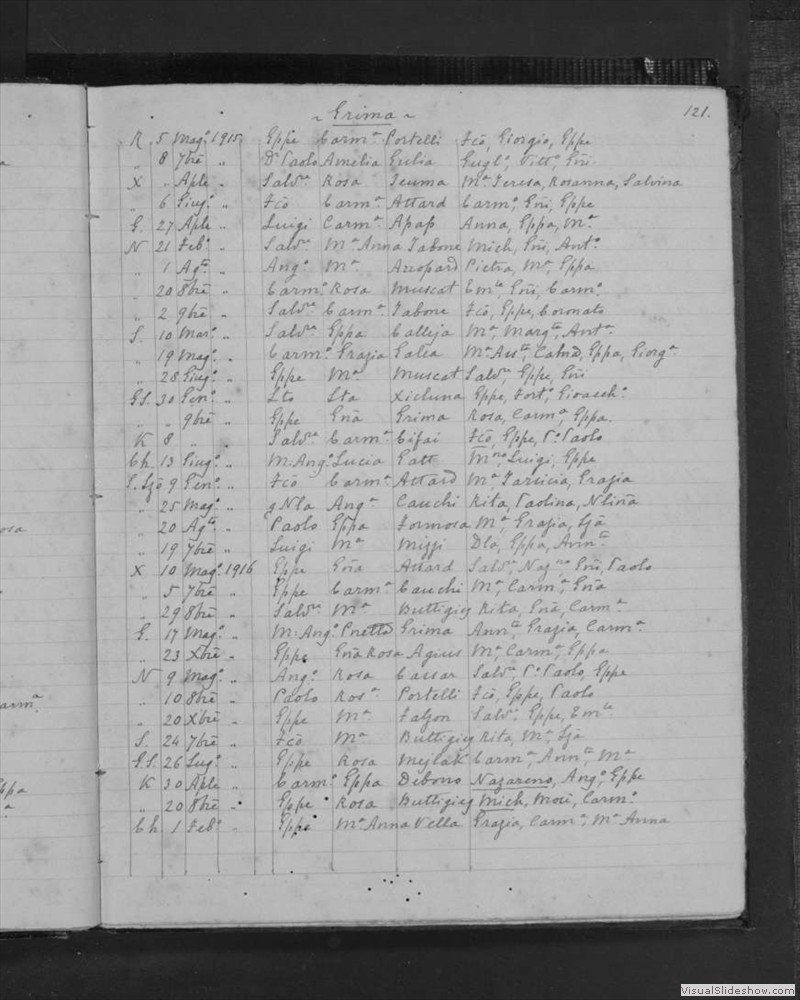 ~ Grima ~ 121.
R. 5 Mag.º 1915 Eppe Carm.ª Portelli Fcõ, Giorgio, Eppe
„ 8 7bre „ Dr Paolo Amelia Gulia Gugl.º, Vitt.º, Gñi
X „ Aple „ Salv.re Rosa Teuma M.ª Teresa, Rosanna, Salvina
„ 6 Giug.º „ Fcõ Carm.ª Attard Carm.º, Gñi, Eppe
G. 27 Aple „ Luigi Carm.ª Apap Anna, Eppa, M.ª
N 21 Feb.º „ Salv.re M.ª Anna Tabone Mich, Gñi, Ant.º
„ 1 Ag.to „ Ang.º M.ª Azzopard Pietra, M.ª, Eppa
„ 20 8bre „ Carm.º Rosa Muscat Em.le, Gñi, Carm.º
„ 2 9bre „ Salv.re Carm.ª Tabone Fcõ, Eppe, Coronato
S. 10 Mar.º „ Salv.re Eppa Calleja M.ª, Marg.ta, Ant.ª
„ 19 Mag.º „ Carm.º Grazia Galea M.ª Ass.ta, Eppa, Giorg.ª
„ 28 Giug.º „ Eppe M.ª Muscat Salv.re, Eppe, Gñi
GS. 30 Gen.º „ Sto Sta Xicluna Eppe, Fort.º, Gioacch.º
„ „ 9bre „ Eppe Gña Grima Rosa, Carm.ª, Eppa.
K 8 „ „ Salv.re Carm.ª Cifai Fcõ, Eppe, P.º Paolo
Ch. 13 Giug.º „ M. Ang.º Lucia Gatt M.no, Luigi, Eppe
S. Lzõ 9 Gen.º „ Fcõ Carm.ª Attard M.ª Tarcisia, Grazia
„ 25 Mag.º „ gNla Ang.ª Cauchi Rita, Paolina, Nlina
„ 20 Ag.to „ Paolo Eppa Formosa M.ª, Grazia, Ljã
„ 19 7bre „ Luigi M.ª Mizzi Dla, Eppa, Ann.ta
X 10 Mag.º 1916 Eppe Gña Attard Salv.re, Naz.no, Gñi, Paolo
„ 5 7bre „ Eppe Carm.ª Cauchi M.ª, Carm.ª, Gña
„ 29 8bre „ Salv.re M.ª Buttigieg Rita, Gña, Carm.ª
G. 17 Mag.º „ M. Ang.º Grima Ann.ta, Grazia, Carm.ª
„ 23 Xbre „ Eppe Gña Rosa Agius M.ª, Carm.ª, Eppa
N 9 Mag.º „ Ang.º Rosa Cassar Salv.re, P.º Paolo, Eppe
„ 10 8bre „ Paolo Ros.ª Portelli Fcõ, Eppe, Paolo
„ 20 Xbre „ Eppe M.ª Falzon Salv.re, Eppe, Em.le
S. 24 7bre „ Fcõ M.ª Buttigieg Rita, M.ª, Ljã
GS. 26 Lug.º „ Eppe Rosa Mejlak Carm.ª, Ann.ta, M.ª
K 30 Aple „ Carm.º Eppa Debono Nazareno, Ang.º, Eppe
„ 20 8bre „ Eppe Rosa Buttigieg Mich, Carm.º
Ch. 1 Feb.º „ Eppe M.ª Anna Vella Grazia, Carm.ª, M.ª Anna
VisualSlideshow.com